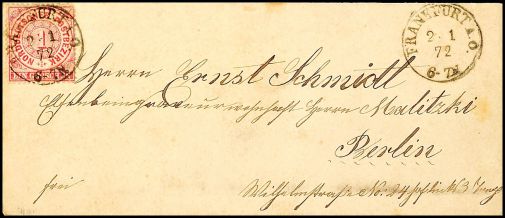 FRANKFURT A.O.
2 1
72
6-7N
NORDD. POSTBEZIRK
FRANKFURT A.O.
2 1
72
6-7N
Herrn Ernst Schmidt
Herrn Malitzki
Berlin
frei
Wilhelmstraße No. 24